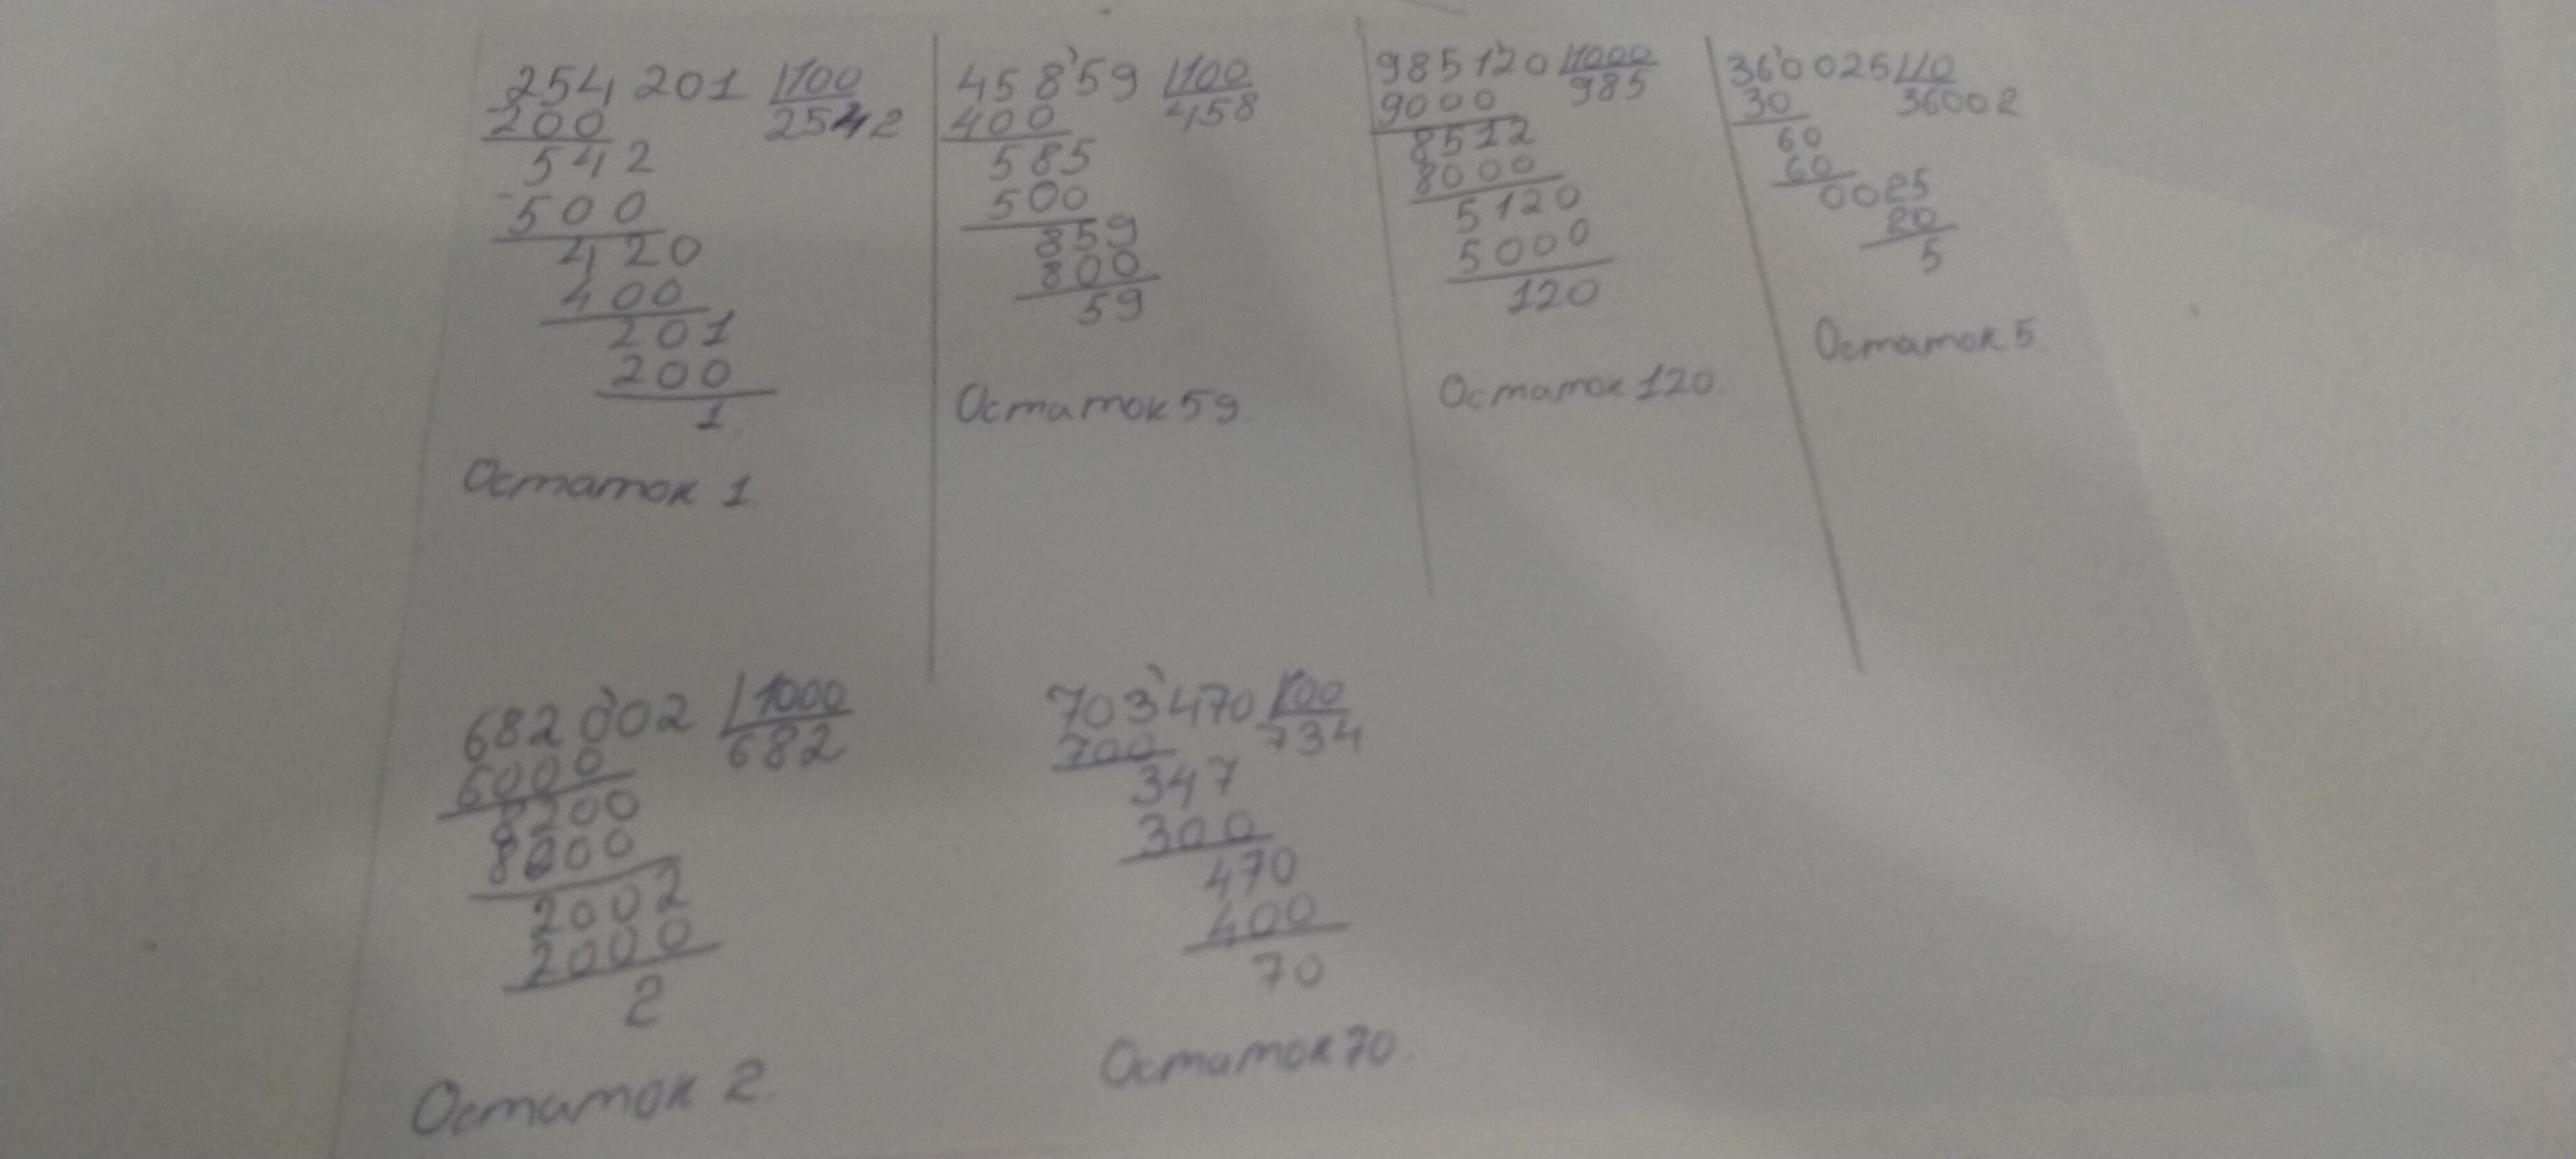 254 201 100
200 2542
542
500
420
400
201
200
1
Остаток 1.
45 8'59 100
400 458
585
500
859
800
59
Остаток 59.
985 120 1000
9000 985
8512
8000
5120
5000
120
Остаток 120.
360 025 10
30 36002
60
60
0025
20
5
Остаток 5.
682 002 1000
6000 682
8200
8000
2002
2000
2
Остаток 2.
703'470 100
700 734
347
300
470
400
70
Остаток 70.